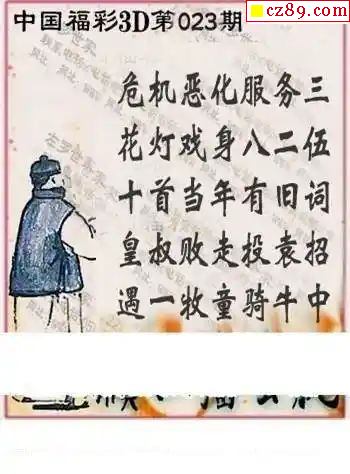 cz89.com
中国福彩3D第023期
危机恶化服务三
花灯戏身八二伍
十首当年有旧词
皇叔败走投袁招
遇一牧童骑牛中